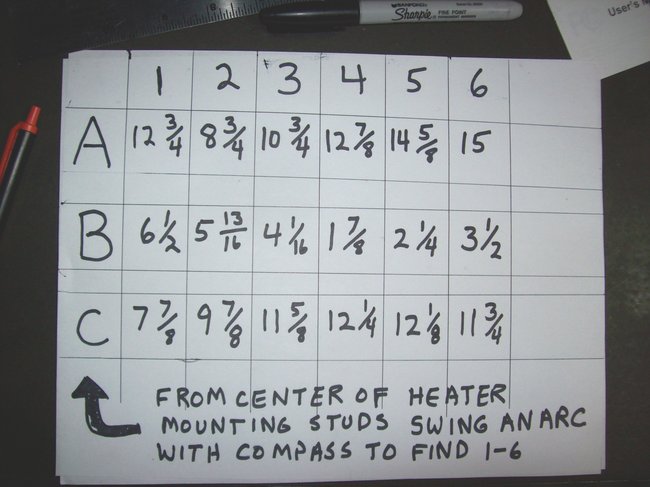 SANFORD
Sharpie FINE POINT
User's
1 2 3 4 5 6
A 12 3/4 8 3/4 10 3/4 12 7/8 14 5/8 15
B 6 1/2 5 13/16 4 1/16 1 7/8 2 1/4 3 1/2
C 7 7/8 9 7/8 11 5/8 12 1/4 12 1/8 11 3/4
FROM CENTER OF HEATER
MOUNTING STUDS SWING AN ARC
WITH COMPASS TO FIND 1-6